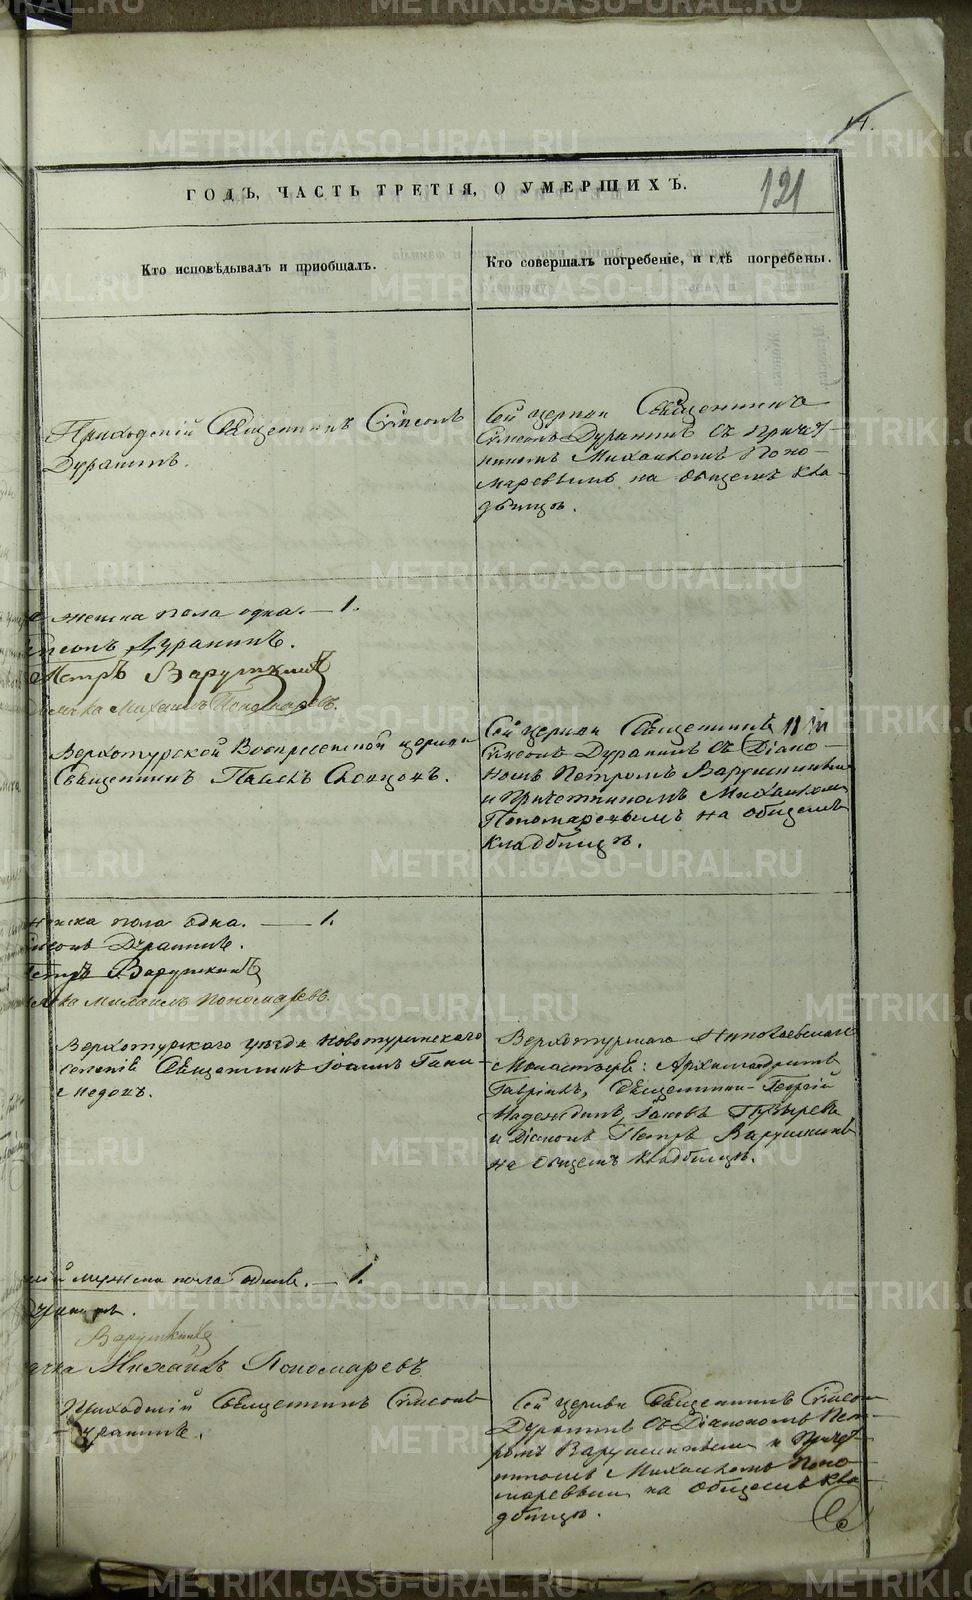 14.
121
ГОДЪ, ЧАСТЬ ТРЕТІЯ, О УМЕРШИХЪ.
Кто исповѣдывалъ и приобщалъ.
Кто совершалъ погребеніе, и гдѣ погребены.
Приходскій Священникъ Симеонъ
Дуранинъ.
Сей церкви Священникъ
Симеонъ Дуранинъ съ Причет-
никомъ Михаиломъ Поно-
маревымъ на общемъ кла-
дбищѣ.
женска пола одна. — 1.
Дуранинъ.
Петръ Варушкинъ
Михаилъ Пономаревъ.
Верхотурской Воскресенской церкви
Священникъ Павелъ
Сей церкви Священникъ
Симеонъ Дуранинъ съ Діако-
номъ Петромъ Варушкинымъ
и Причетникомъ Михаиломъ
Пономаревымъ на общемъ
кладбищѣ.
женска пола одна. — 1.
Дуранинъ.
Петръ Варушкинъ
Михаилъ Пономаревъ.
Верхотурскаго уѣзда Новотуринскаго
селенія Священникъ Іоаннъ
Верхотурскаго Николаевскаго
Монастыря: Архимандритъ
Гавріилъ, Священники Георгій
Надеждинъ, Іаковъ Пузыревъ
и Діаконъ Петръ Варушкинъ
на общемъ кладбищѣ.
мужска пола одинъ. — 1.
Варушкинъ
Михаилъ Пономаревъ
Приходскій Священникъ Симеонъ
Дуранинъ.
Сей церкви Священникъ Симеонъ
Дуранинъ съ Діакономъ Пет-
ромъ Варушкинымъ и Причет-
никомъ Михаиломъ Поно-
маревымъ на общемъ кла-
дбищѣ.
METRIKI.GASO-URAL.RU